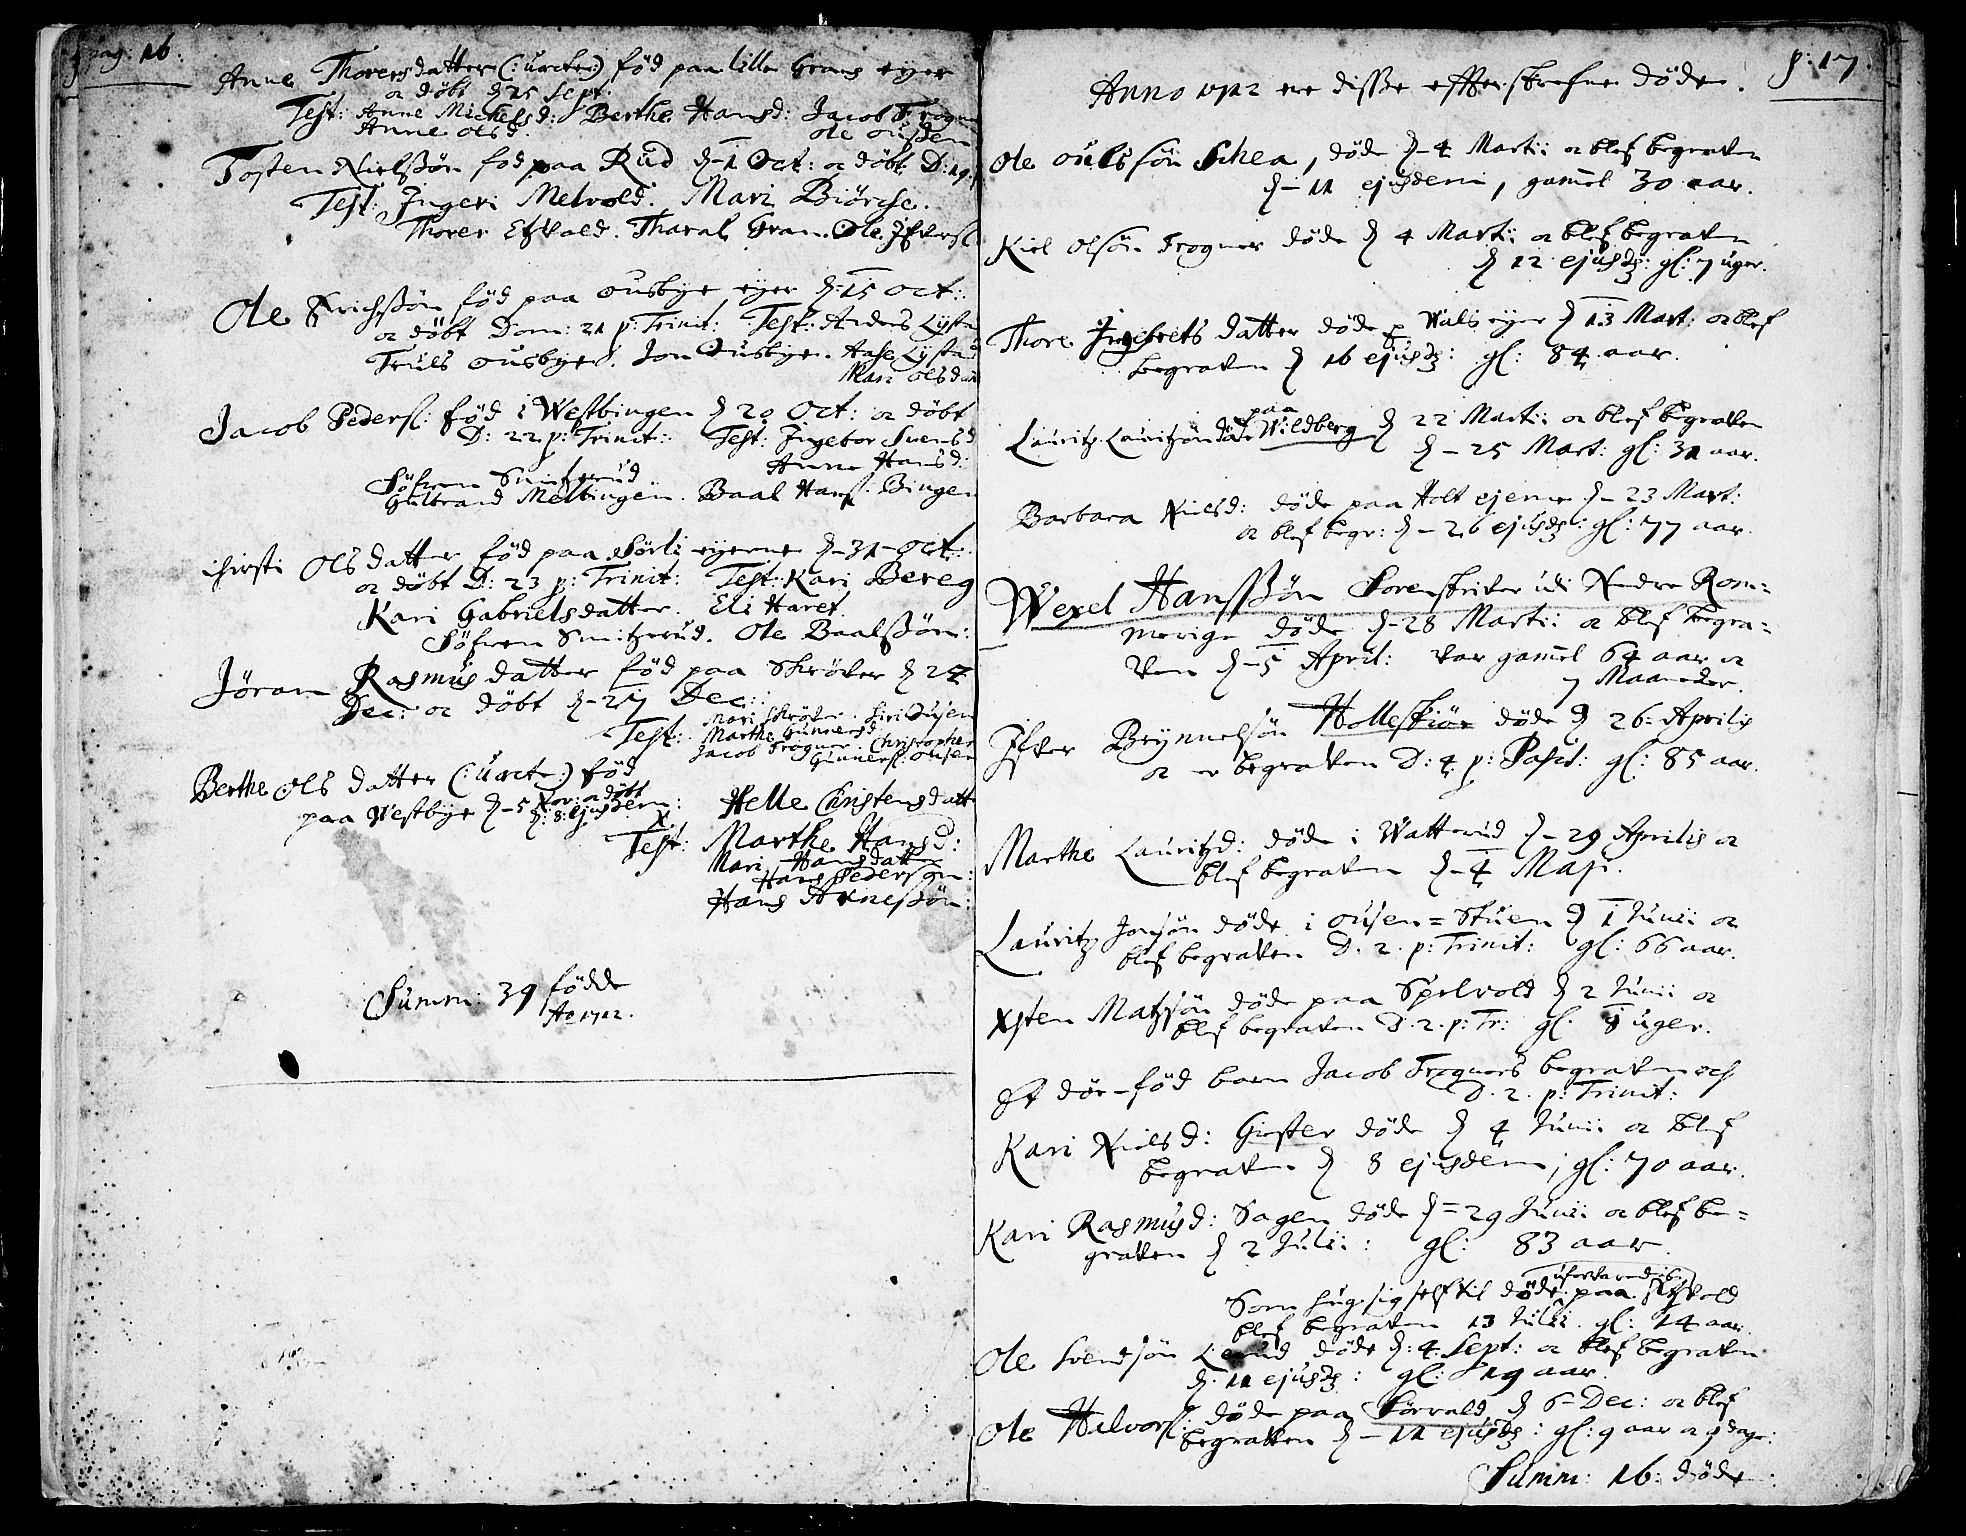 pag: 16:
Anne Thoresdatter (: uæcte :) fød paa lille Grans eyer
oc døbt d 25 Sept.
Test: Anne Michelsd: Berthe Hansd: Jacob Trogner
Anne Olsd. Ole Oussen
Tosten Nielssøn fød paa Rud d-1 Oct: oc døbt D: 19.
Test: Ingeri Melvold. Mari Biørche.
Thorer Etzvold. Tharal Gran. Ole Ifversl
Ole Erichssøn fød paa Ousbye eyer d: 15 Oct:
oc døbt Dom: 21 p: Trinit: Test: Anders Lystad
Truls Ousbye. Jon Ousbye. Aase Lystad
Mari Olsdat
Jacob Pedersl: fød i Westbingen d 20 Oct: oc døbt
D: 22 p: Trinit: Test: Ingebor Svensd
Anne Hansd:
Søfren Smitzrud
Gulbrand Melbingen. Baal Hansl. Bingen
Chirsti Ols datter fød paa Sørli eyerne d-31-Oct:
oc døbt D: 23 p: Trinit: Test: Kari Bereg
Kari Gabrielsdatter. Eli Haref
Søfren Smitzrud. Ole Baalssøn:
Jøran Rasmusdatter fød paa Skrøver d 22
Dec: oc døbt d-27 Dec:
Test: Mari Skrøver. Siri Ousen
Marthe Gunnersd
Jacob Trogner. Christopher
Gunnersl: Ousen
Berthe Ols datter (: uæcte :) fød
paa Westbye d-5 Nov: oc døbt
d: 8: ejusdem:
Test: Helle Christensdatt
Marthe Hansd:
Mari Hansdatter
Hans Pedersøn:
Hans Arnessøn:
Summ: 39 fødde
Ao 1712.
p: 17.
Anno 1712 ere disse effterskrefne døde.
Ole Oulssøn Schea, døde d-4 Martii oc blef begraven
d-11 ejusdem, gamel 30 aar.
Kiel Olsøn Trogner døde d 4 Martii oc blef begraven
d 12 ejusd: gl: 7 uger.
Thore Ingebrets datter døde p Vals eyer d 13 Mart: oc blef
begraven d 16 ejusd: gl: 84 aar.
Lauritz Lauritzøn døde paa Wildberg d 22 Martii oc blef begraven
d-25 Mart: gl: 31 aar.
Barbara Nielsd: døde paa Holt ejerne d-23 Mart:
oc blef begr: d-26 ejusd: gl: 77 aar.
Wexel Hanssøn Sorenskriver udi Nedre Rom=
merige døde d-28 Martii oc blef begra=
ven d-5 April: var gamel 64 aar oc
7 Maaneder.
Ifver Brynnelsøn Hollesiøe døde d 26 Aprilis
oc er begraven D: 4 p: Pasc: gl: 85 aar.
Marthe Lauritzd: døde i Watterud d-29 Aprilis oc
blef begraven d-4 Maji.
Lauritz Jonsøn døde i Ousen=Stuen d 1 Junii oc
blef begraven D. 2. p: Trinit: gl: 66 aar.
Xsten Matzsøn døde paa Spelvold d 2 Junii oc
blef begraven D. 2. p: Tr: gl. 8 uger.
Et dør-fød barn Jacob Trogners begraven och
D. 2. p: Trinit:
Kari Nielsd: Giester døde d 4 Junii oc blef
begraven d 8 ejusdem; gl: 70 aar.
Kari Rasmusd: Sagen døde d=29 Junii oc blef be=
graven d 2 Julii: gl: 83 aar.
Som hug sig self til døde uforvarendis paa Etzvold
blef begraven 13 Julii. gl: 14 aar.
Ole Svendsøn Lerud døde d: 4: Sept: oc blef begraven
d. 11 ejusd: gl: 19 aar.
Ole Halvorsl: døde paa Sørvald d 6-Dec: oc blef
begraven d-11 ejusd: gl: 9 aar oc 9 dage:
Summ: 16: døde: